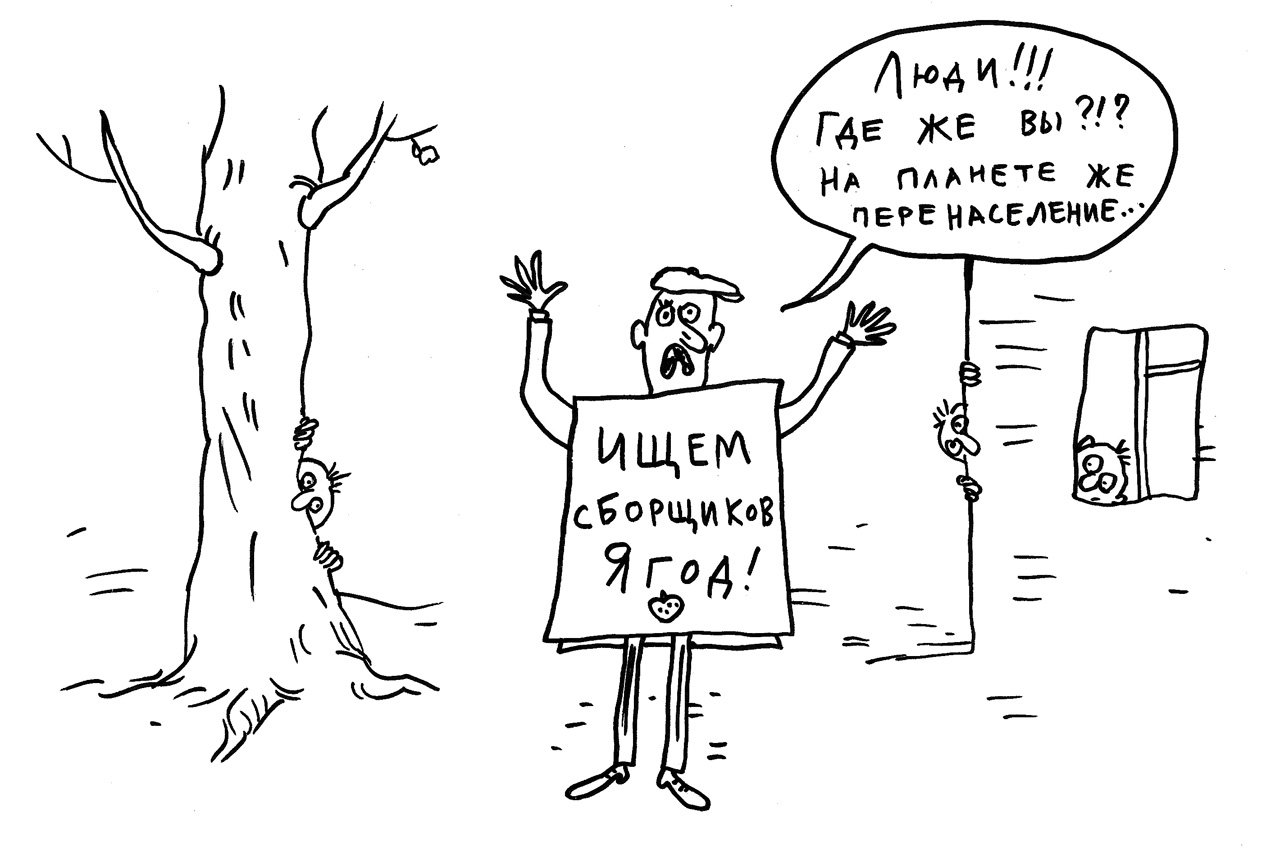 Люди!!!
ГДЕ ЖЕ ВЫ?!?
НА ПЛАНЕТЕ ЖЕ
ПЕРЕНАСЕЛЕНИЕ...
ИЩЕМ
СБОРЩИКОВ
ЯГОД!